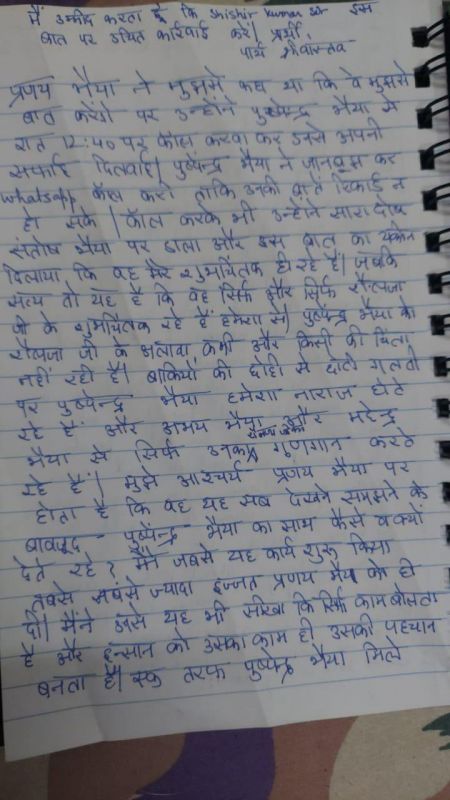 मैं उम्मीद करता हूँ कि Shishir Kumar Sir इस
बात पर उचित कार्रवाई करे। प्रार्थी,
पार्थ श्रीवास्तव
प्रणय भैया ने मुझसे कहा था कि वे मुझसे
बात करेंगे पर उन्होंने पुष्पेन्द्र भैया से
रात 12:40 पर कॉल करवा कर उनसे अपनी
सफाई दिलवाई। पुष्पेन्द्र भैया ने जानबूझ कर
whatsapp कॉल करी ताकि उनकी बातें रिकॉर्ड न
हो सकें। कॉल करके भी उन्होंने सारा दोष
संतोष भैया पर डाला और इस बात का यकीन
दिलाया कि वह मेरे शुभचिंतक ही रहे हैं। जबकि
सत्य तो यह है कि वह सिर्फ और सिर्फ शैलजा
जी के शुभचिंतक रहे हैं हमेशा से। पुष्पेन्द्र भैया को
शैलजा जी के अलावा कभी और किसी की चिंता
नहीं रही है। बाकियों की छोटी से छोटी गलती
पर पुष्पेन्द्र भैया हमेशा नाराज़ होते
रहे हैं और अभय भैया और महेन्द्र
भैया से सिर्फ उनका गुणगान करते
रहे हैं। मुझे आश्चर्य प्रणय भैया पर
होता है कि वह यह सब देखने समझने के
बावजूद पुष्पेन्द्र भैया का साथ कैसे व क्यों
देते रहे? मैंने जबसे यह कार्य शुरू किया
तबसे सबसे ज्यादा इज्जत प्रणय भैया को ही
दी। मैंने उनसे यह भी सीखा कि सिर्फ काम बोलता
है और इन्सान को उसका काम ही उसकी पहचान
बनता है। एक तरफ पुष्पेन्द्र भैया मिले